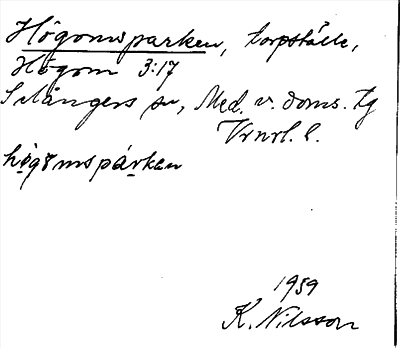 Högomsparken, torpställe,
Högom 3:17
Selångers sn, Med. v. doms. tg
Vrnrl. l.
högomspárken
1959
K. Nilsson